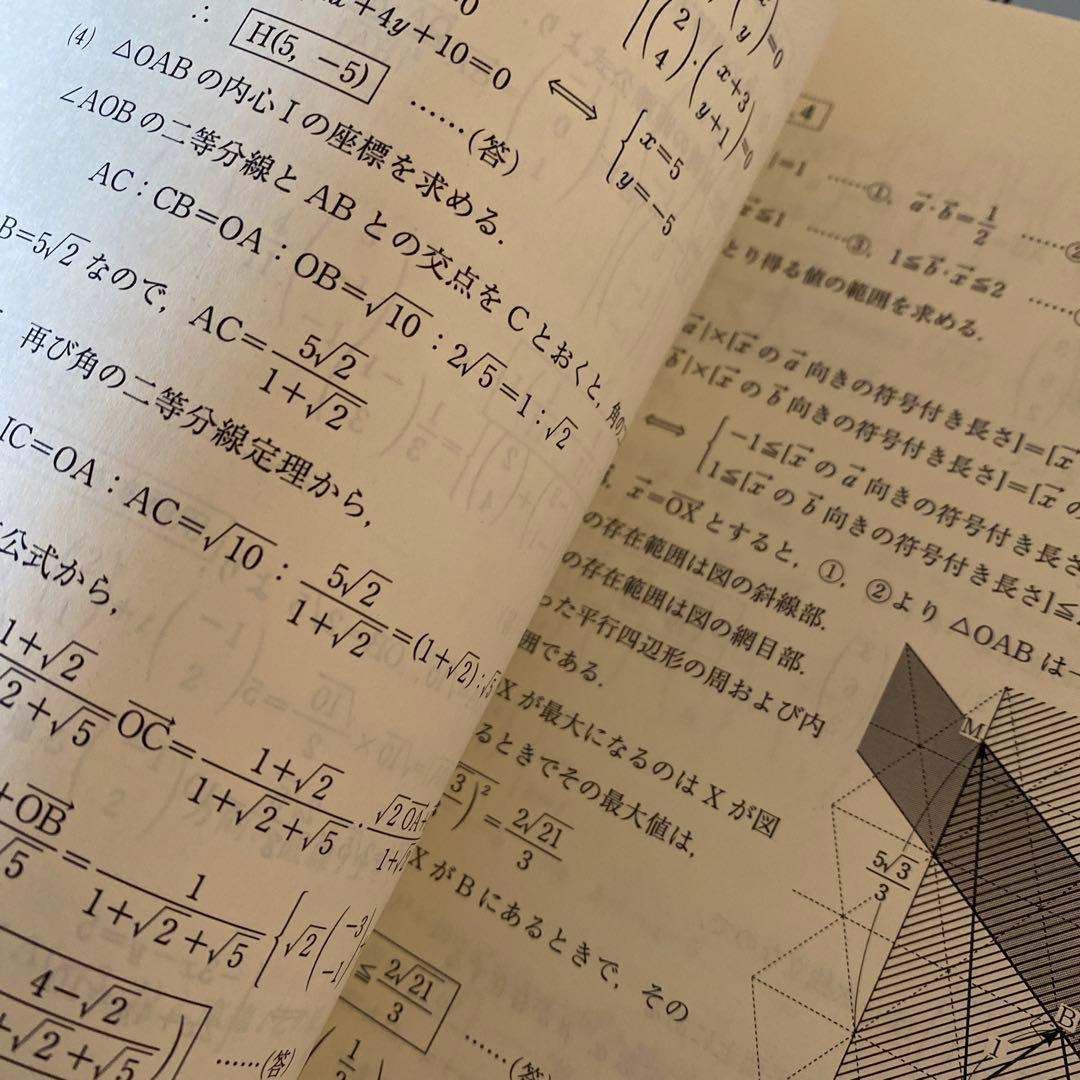 +4y+10=0
∴ H(5, −5) ……(答)
⟺ {x=5
y=−5
(2
4)・(x+3
y+1)=0
(4) △OABの内心Iの座標を求める.
∠AOBの二等分線とABとの交点をCとおくと,
AC:CB=OA:OB=√10:2√5=1:√2
B=5√2なので, AC=5√2/(1+√2)
再び角の二等分線定理から,
IC=OA:AC=√10:5√2/(1+√2)=(1+√2):√5
公式から,
1+√2
√2+√5 OC→=(1+√2)/(1+√2+√5)・
+OB→
√5 =1/(1+√2+√5){√2(−3
−1)
4−√2
+√2+√5) ……(答)
4
=1 ……①, a→・b→=1/2 ……②
x→≦1 ……③, 1≦b→・x→≦2 ……
とり得る値の範囲を求める.
a→|×[x→のa→向きの符号付き長さ]=[x→
b→|×[x→のb→向きの符号付き長さ]=[x→の
⟺ {−1≦[x→のa→向きの符号付き長さ
1≦[x→のb→向きの符号付き長さ]≦
x→=OX→とすると, ①, ②より△OABは一
の存在範囲は図の斜線部.
の存在範囲は図の網目部.
った平行四辺形の周および内
囲である.
Xが最大になるのはXが図
るときでその最大値は,
3)²=2√21/3
XがBにあるときで, その
≦2√21/3 ……(答
(1/2
M
5√3/3
B
1